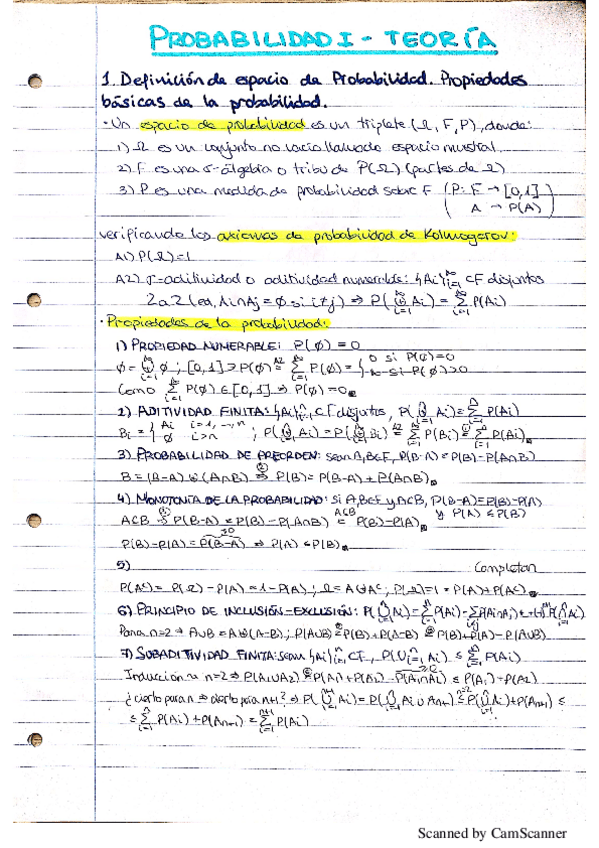 PROBABILIDAD I - TEORÍA
1. Definición de espacio de Probabilidad. Propiedades
básicas de la probabilidad.
· Un espacio de probabilidad es un triplete (Ω, F, P), donde:
1) Ω es un conjunto no vacío llamado espacio muestral.
2) F es una σ-álgebra o tribu de P(Ω) (partes de Ω)
3) P es una medida de probabilidad sobre F (P: F → [0,1]
A → P(A))
verificando los axiomas de probabilidad de Kolmogorov:
A1) P(Ω)=1
A2) σ-aditividad o aditividad numerable: {Ai}∞i=1 ⊂F disjuntos
2 a 2 (ea, Ai∩Aj=ø si i≠j) ⇒ P(⊎∞i=1 Ai) = Σ∞i=1 P(Ai)
· Propiedades de la probabilidad:
1) PROPIEDAD NUMERABLE: P(ø) = 0
ø = ⊎∞i=1 ø ; [0,1]∋P(ø) =A2 Σ∞i=1 P(ø) = { 0 si P(ø)=0
∞ si P(ø)>0
Como Σ∞i=1 P(ø) ∈ [0,1] ⇒ P(ø) = 0
2) ADITIVIDAD FINITA: {Ai}ni=1 ⊂F disjuntos, P(⊎ni=1 Ai) = Σni=1 P(Ai)
Bi = { Ai i=1,...,n
ø i>n ; P(⊎ni=1 Ai) = P(⊎∞i=1 Bi) =A2 Σ∞i=1 P(Bi) = Σni=1 P(Ai)
3) PROBABILIDAD DE PREORDEN: sean A,B∈F, P(B-A) = P(B)-P(A∩B)
B = (B-A) ⊎ (A∩B) ⇒ P(B) = P(B-A) + P(A∩B)
4) MONOTONÍA DE LA PROBABILIDAD: si A,B∈F y A⊂B, P(B-A)=P(B)-P(A)
y P(A) ≤ P(B)
A⊂B ⇒ P(B-A) = P(B) - P(A∩B) =A⊂B P(B)-P(A)
P(B)-P(A) = P(B-A) ≥0 ⇒ P(A) ≤ P(B)
5) Completar
P(Ac) = P(Ω) - P(A) = 1-P(A) ; Ω = A⊎Ac ; P(Ω)=1 = P(A)+P(Ac)
6) PRINCIPIO DE INCLUSIÓN-EXCLUSIÓN:
Para n=2 → A∪B = A⊎(A-B) ; P(A∪B) = P(B)+P(A-B) = P(B)+P(A)-P(A∩B)
7) SUBADITIVIDAD FINITA: sean {Ai}ni=1 ⊂F, P(∪ni=1 Ai) ≤ Σni=1 P(Ai)
Inducción n=2 → P(A1∪A2) = P(A1)+P(A2)-P(A1∩A2) ≤
¿cierto para n ⇒ cierto para n+1? ⇒ P(∪n+1i=1 Ai) = P(∪ni=1 Ai ∪ An+1) ≤n=2 P(∪ni=1 Ai)+P(An+1) ≤
≤ Σni=1 P(Ai) + P(An+1) = Σn+1i=1 P(Ai)
Scanned by CamScanner